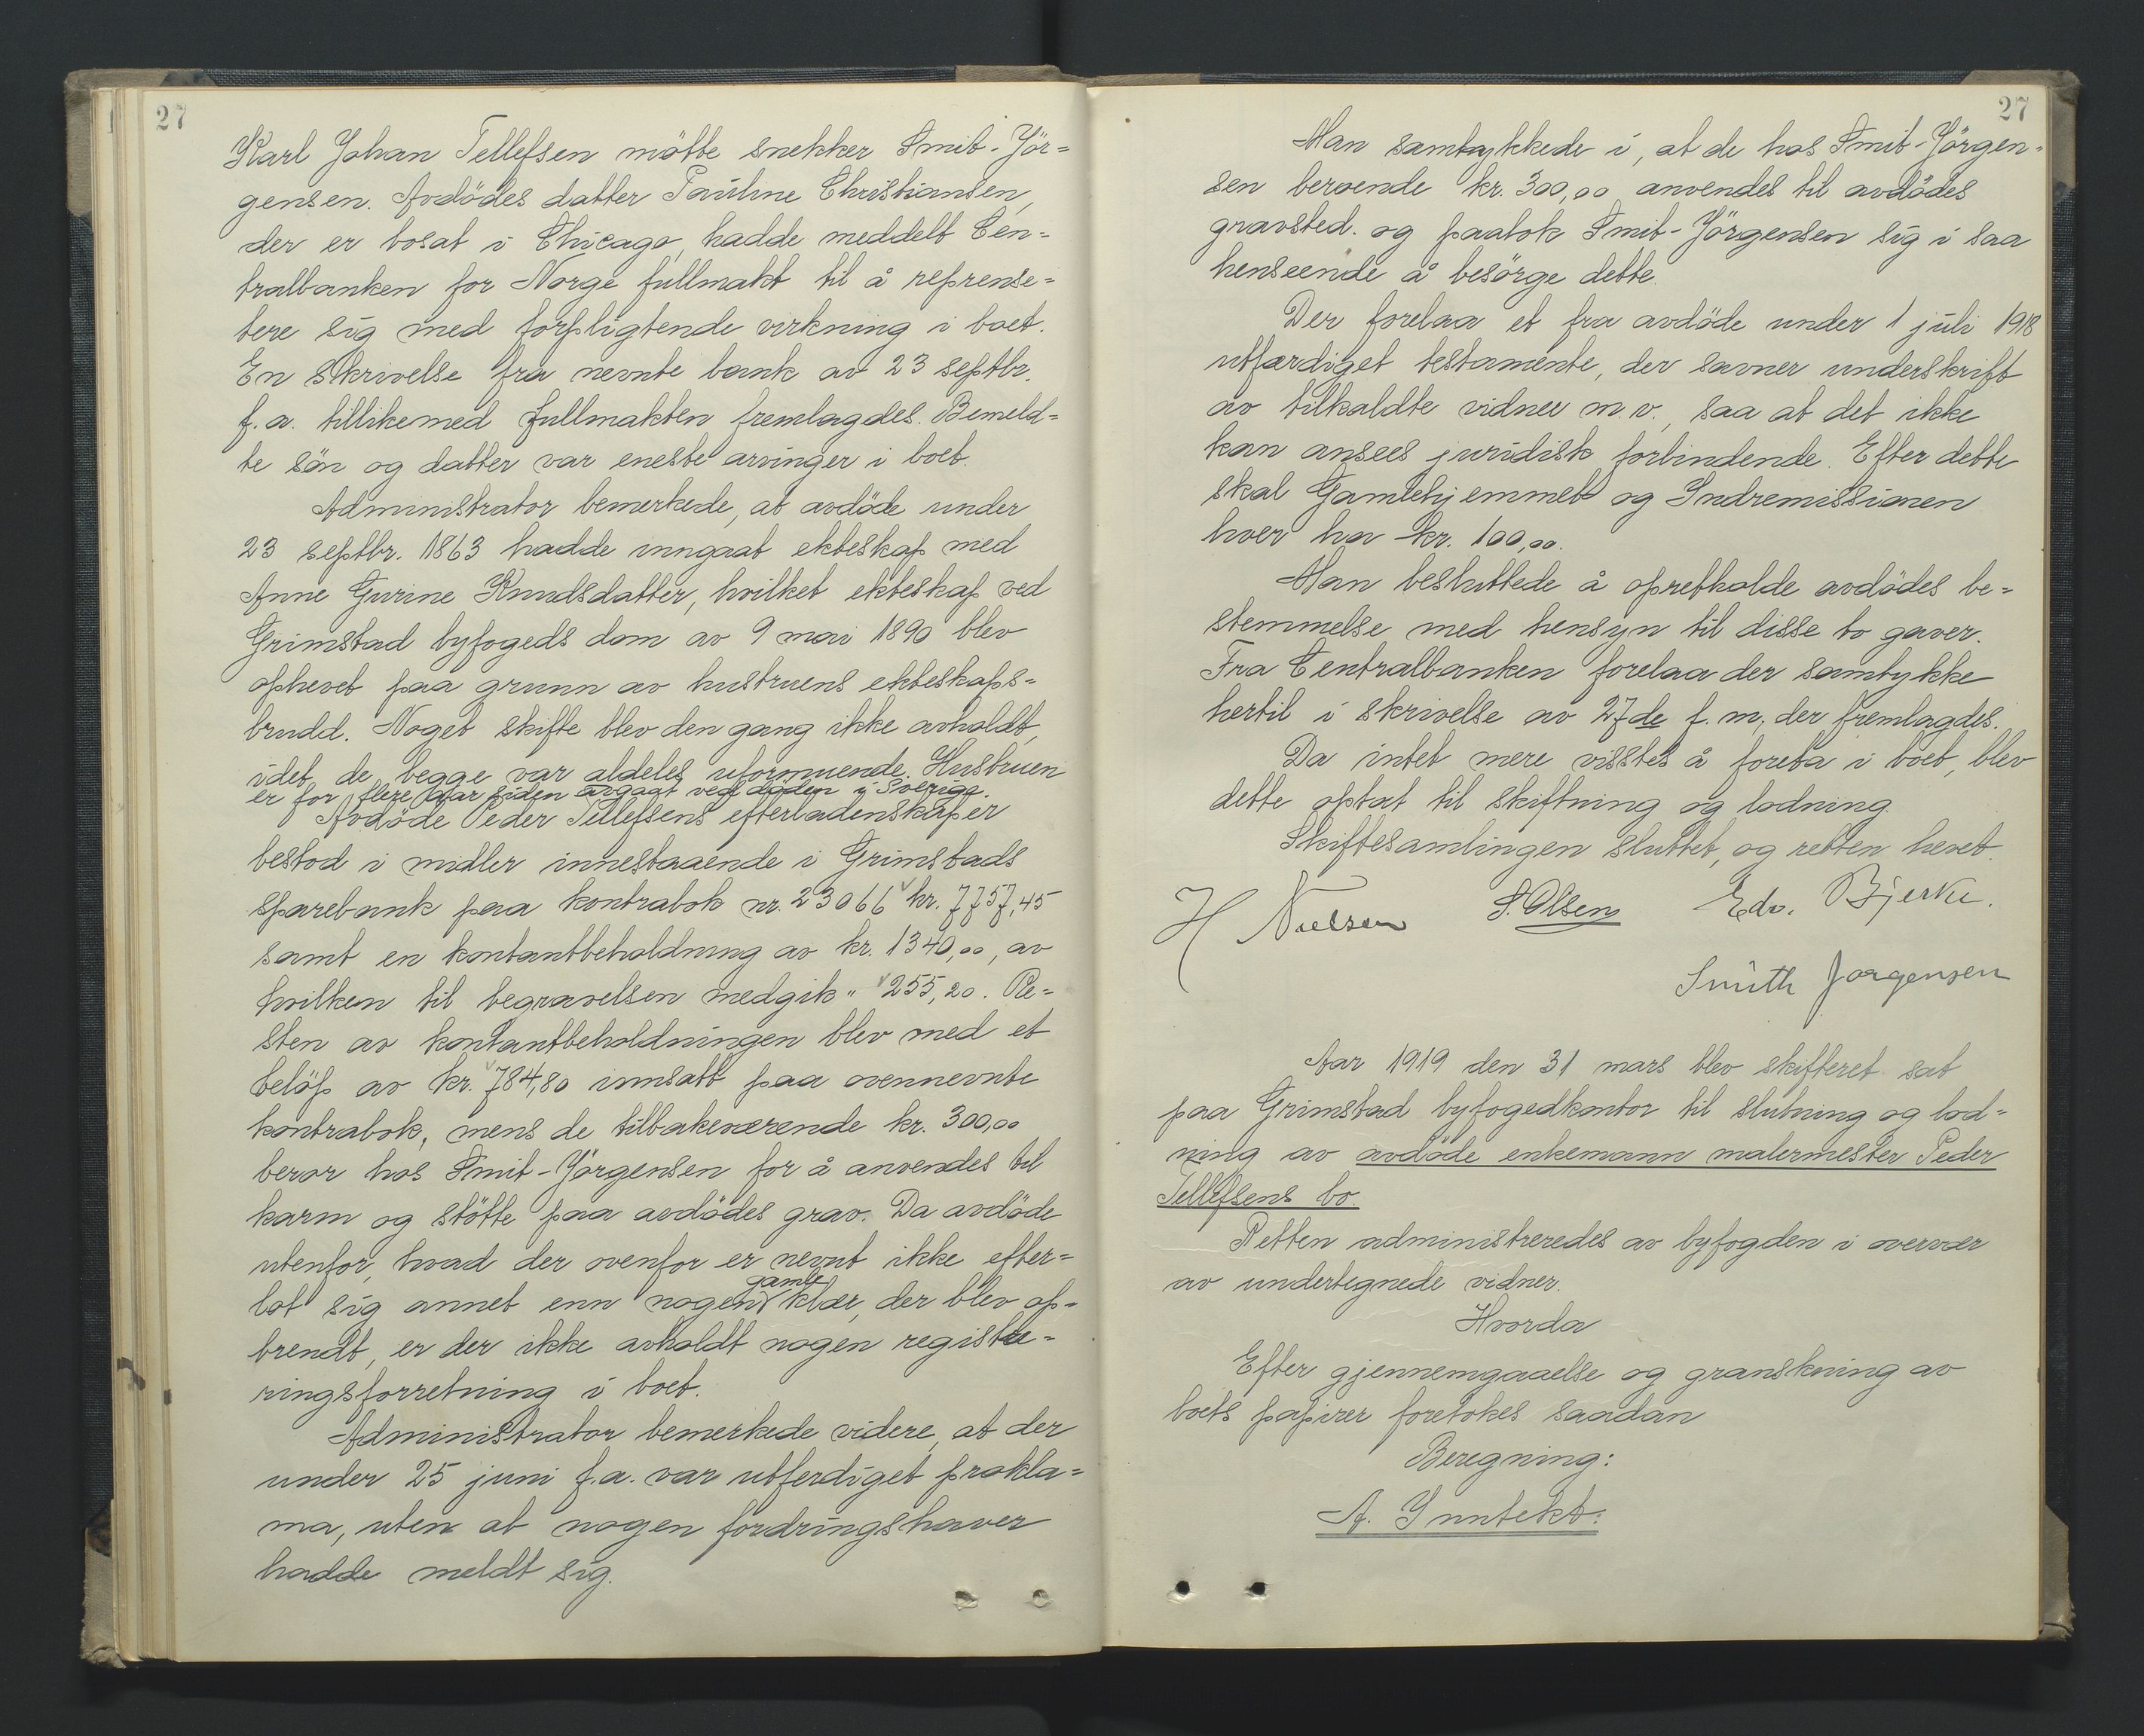 27
Karl Johan Tellefsen mötte snekker Smit-Jör=
gensen. Avdödes datter Pauline Christiansen,
der er bosat i Chicago, hadde meddelt Cen=
tralbanken for Norge fullmakt til å reprense=
tere sig med forpligtende virkning i boet.
En skrivelse fra nevnte bank av 23 septbr.
f.a. tillikemed fullmakten fremlagdes. Bemeld=
te sön og datter var eneste arvinger i boet.
Administrator bemerkede, at avdöde under
23 septbr. 1863 hadde inngaat ekteskap med
Anne Gurine Knudsdatter, hvilket ekteskap ved
Grimstad byfogeds dom av 9 mai 1890 blev
ophevet paa grunn av hustruens ekteskaps=
brudd. Noget skifte blev den gang ikke avholdt,
idet de begge var aldeles uformuende. Hustruen
er for flere aar siden avgaat ved döden i Sverige.
Avdöde Peder Tellefsens efterladenskaper
bestod i midler innestaaende i Grimstads
sparebank paa kontrabok nr. 23066 kr. 7757,45
samt en kontantbeholdning av kr. 1340,00, av
hvilken til begravelsen medgik " 255,20. Re=
sten av kontantbeholdningen blev med et
belöp av kr. 784,80 innsatt paa ovennevnte
kontrabok, mens de tilbakeværende kr. 300,00
beror hos Smit-Jörgensen for å anvendes til
karm og stötte paa avdödes grav. Da avdöde
utenfor, hvad der ovenfor er nevnt ikke efter=
lot sig annet enn nogen gamle klær, der blev op=
brendt, er der ikke avholdt nogen registre=
ringsforretning i boet.
Administrator bemerkede videre, at der
under 25 juni f.a. var utferdiget prokla=
ma, uten at nogen fordringshaver
hadde meldt sig.
27
Man samtykkede i, at de hos Smit-Jörgen=
sen beroende kr. 300,00 anvendes til avdödes
gravsted. og paatok Smit-Jörgensen sig i saa
henseende å besörge dette.
Der forelaa et fra avdöde under 1 juli 1918
utfærdiget testamente, der savner underskrift
av tilkaldte vidner m.v., saa at det ikke
kan ansees juridisk forbindende. Efter dette
skal Gamlehjemmet og Indremissionen
hver ha kr. 100,00.
Man besluttede å opretholde avdödes be=
stemmelse med hensyn til disse to gaver.
Fra Centralbanken forelaa der samtykke
hertil i skrivelse av 27de f.m., der fremlagdes.
Da intet mere visstes å foreta i boet, blev
dette optat til skiftning og lodning.
Skiftesamlingen sluttet, og retten hevet.
H Nielsen S. Olsen Edv. Bjerke.
Smith Jorgensen
Aar 1919 den 31 mars blev skifteret sat
paa Grimstad byfogedkontor til slutning og lod=
ning av avdöde enkemann malermester Peder
Tellefsens bo.
Retten administreredes av byfogden i overvær
av undertegnede vidner.
Hvorda
Efter gjennemgaaelse og granskning av
boets papirer foretokes saadan
Beregning:
A. Inntekt: